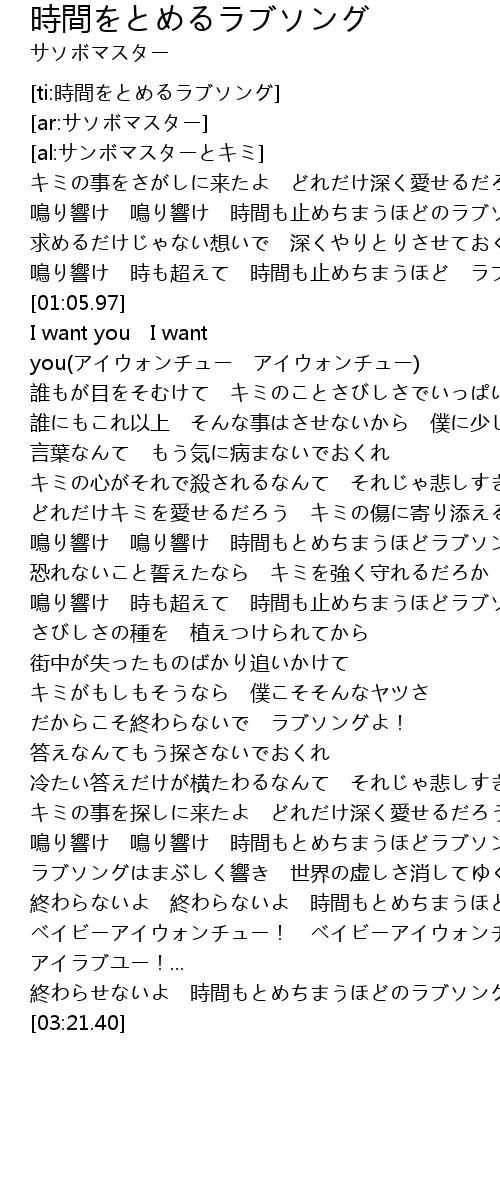 時間をとめるラブソング
サソボマスター
[ti:時間をとめるラブソング]
[ar:サソボマスター]
[al:サンボマスターとキミ]
キミの事をさがしに来たよ　どれだけ深く愛せるだろ
鳴り響け　鳴り響け　時間も止めちまうほどのラブソ
求めるだけじゃない想いで　深くやりとりさせておく
鳴り響け　時も超えて　時間も止めちまうほど　ラブ
[01:05.97]
I want you　I want
you(アイウォンチュー　アイウォンチュー)
誰もが目をそむけて　キミのことさびしさでいっぱい
誰にもこれ以上　そんな事はさせないから　僕に少し
言葉なんて　もう気に病まないでおくれ
キミの心がそれで殺されるなんて　それじゃ悲しすぎ
どれだけキミを愛せるだろう　キミの傷に寄り添える
鳴り響け　鳴り響け　時間もとめちまうほどラブソン
恐れないこと誓えたなら　キミを強く守れるだろか
鳴り響け　時も超えて　時間も止めちまうほどラブソ
さびしさの種を　植えつけられてから
街中が失ったものばかり追いかけて
キミがもしもそうなら　僕こそそんなヤツさ
だからこそ終わらないで　ラブソングよ！
答えなんてもう探さないでおくれ
冷たい答えだけが横たわるなんて　それじゃ悲しすぎ
キミの事を探しに来たよ　どれだけ深く愛せるだろう
鳴り響け　鳴り響け　時間もとめちまうほどラブソン
ラブソングはまぶしく響き　世界の虚しさ消してゆく
終わらないよ　終わらないよ　時間もとめちまうほど
ベイビーアイウォンチュー！　ベイビーアイウォンチ
アイラブユー！...
終わらせないよ　時間もとめちまうほどのラブソング
[03:21.40]